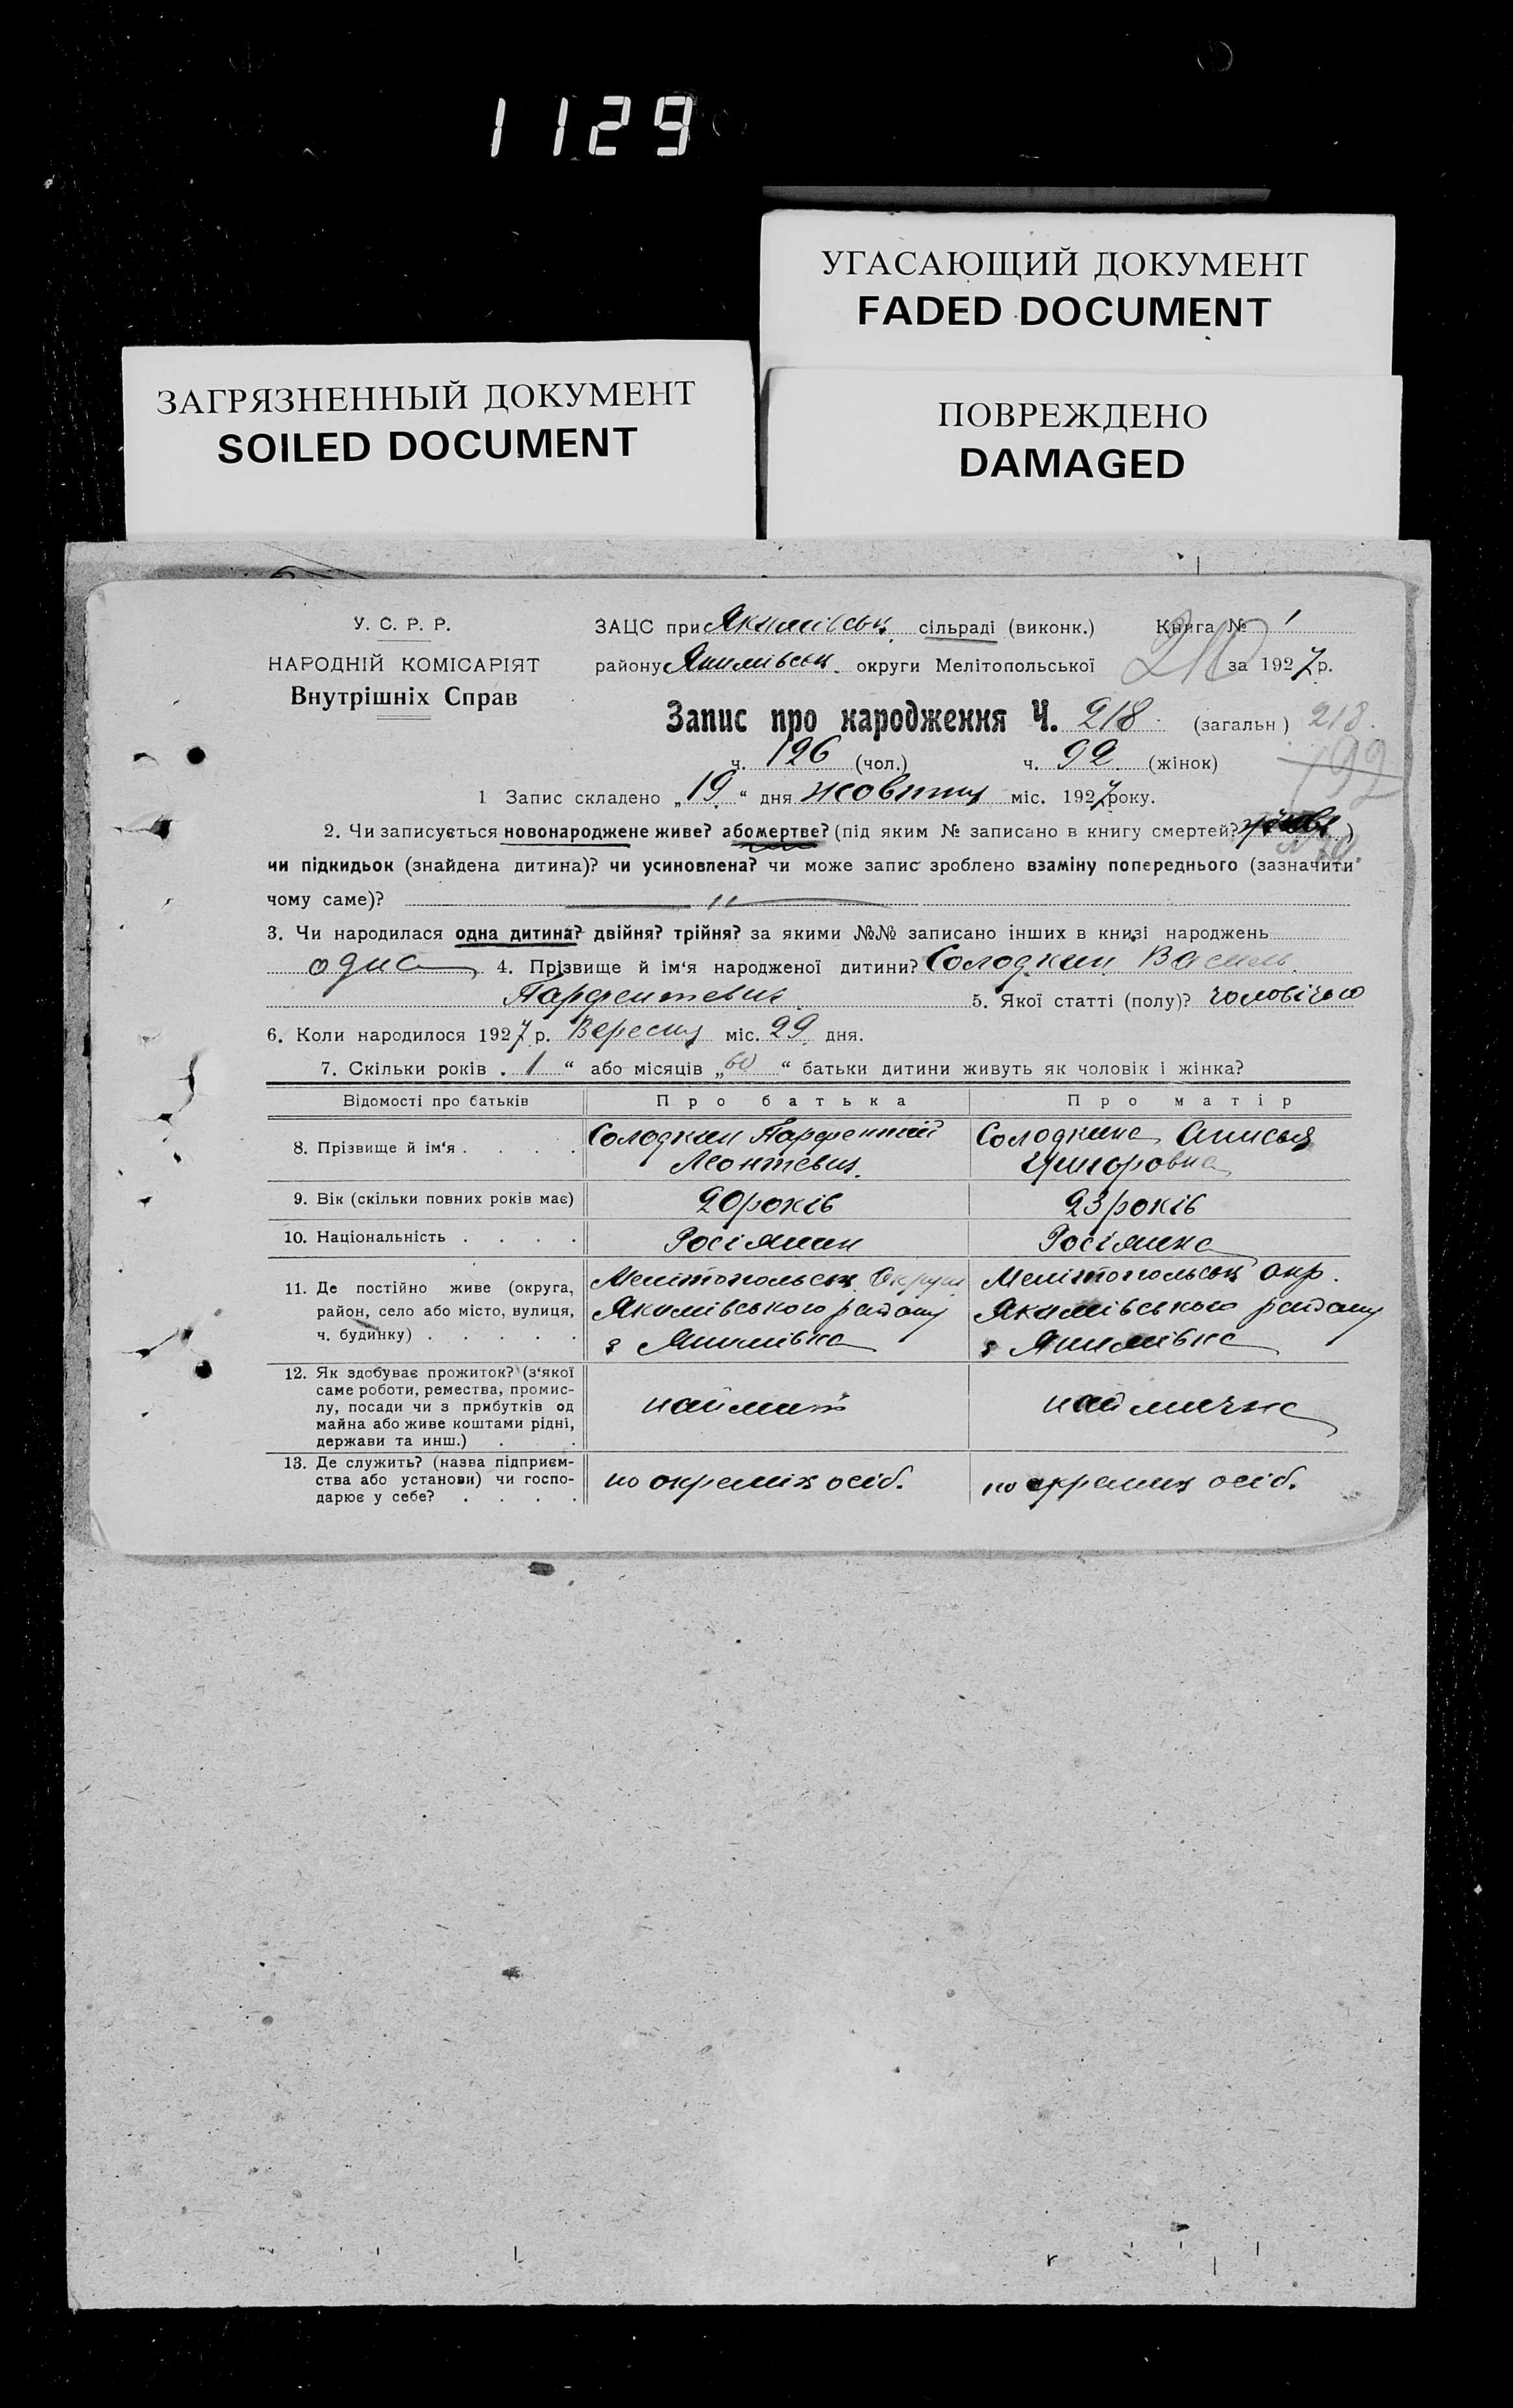 1129
УГАСАЮЩИЙ ДОКУМЕНТ
FADED DOCUMENT
ЗАГРЯЗНЕННЫЙ ДОКУМЕНТ
SOILED DOCUMENT
ПОВРЕЖДЕНО
DAMAGED
У. С. Р. Р.
НАРОДНІЙ КОМІСАРІЯТ
Внутрішніх Справ
ЗАЦС при Якимівськ. сільраді (виконк.) Книга № 1
району Якимівськ. округи Мелітопольської за 1927 р.
210
Запис про народження Ч. 218 (загальн) 218.
ч. 126 (чол.) ч. 92 (жінок)
192
1 Запис складено „19“ дня жовтня міс. 1927 року.
2. Чи записується новонароджене живе? або мертве? (під яким № записано в книгу смертей? )
чи підкидьок (знайдена дитина)? чи усиновлена? чи може запис зроблено взаміну попереднього (зазначити
чому саме)? — " —
3. Чи народилася одна дитина? двійня? трійня? за якими №№ записано інших в книзі народжень
одна 4. Прізвище й ім‘я народженої дитини? Солодкин Василь
Парфентевич 5. Якої статті (полу)? чоловічого
6. Коли народилося 1927 р. Вересня міс. 29 дня.
7. Скільки років „ 1 “ або місяців „ “ батьки дитини живуть як чоловік і жінка?
Відомості про батьків Про батька Про матір
8. Прізвище й ім‘я . . . . Солодкин Парфентий Леонтевич. Солодкина Анисья Григоровна
9. Вік (скільки повних років має) 20 років 23 років
10. Національність . . . . Росіянин Росіянка
11. Де постійно живе (округа, Мелітопольськ Округи Мелітопольськ окр.
район, село або місто, вулиця, Якимівського району Якимівського району
ч. будинку) . . . . . с Якимівка с Якимівка
12. Як здобуває прожиток? (з‘якої
саме роботи, ремества, промис-
лу, посади чи з прибутків од наймит наймичка
майна або живе коштами рідні,
держави та инш.) . .
13. Де служить? (назва підприєм-
ства або установи) чи госпо- по окреміх осіб. по окремих осіб.
дарює у себе? . . . .